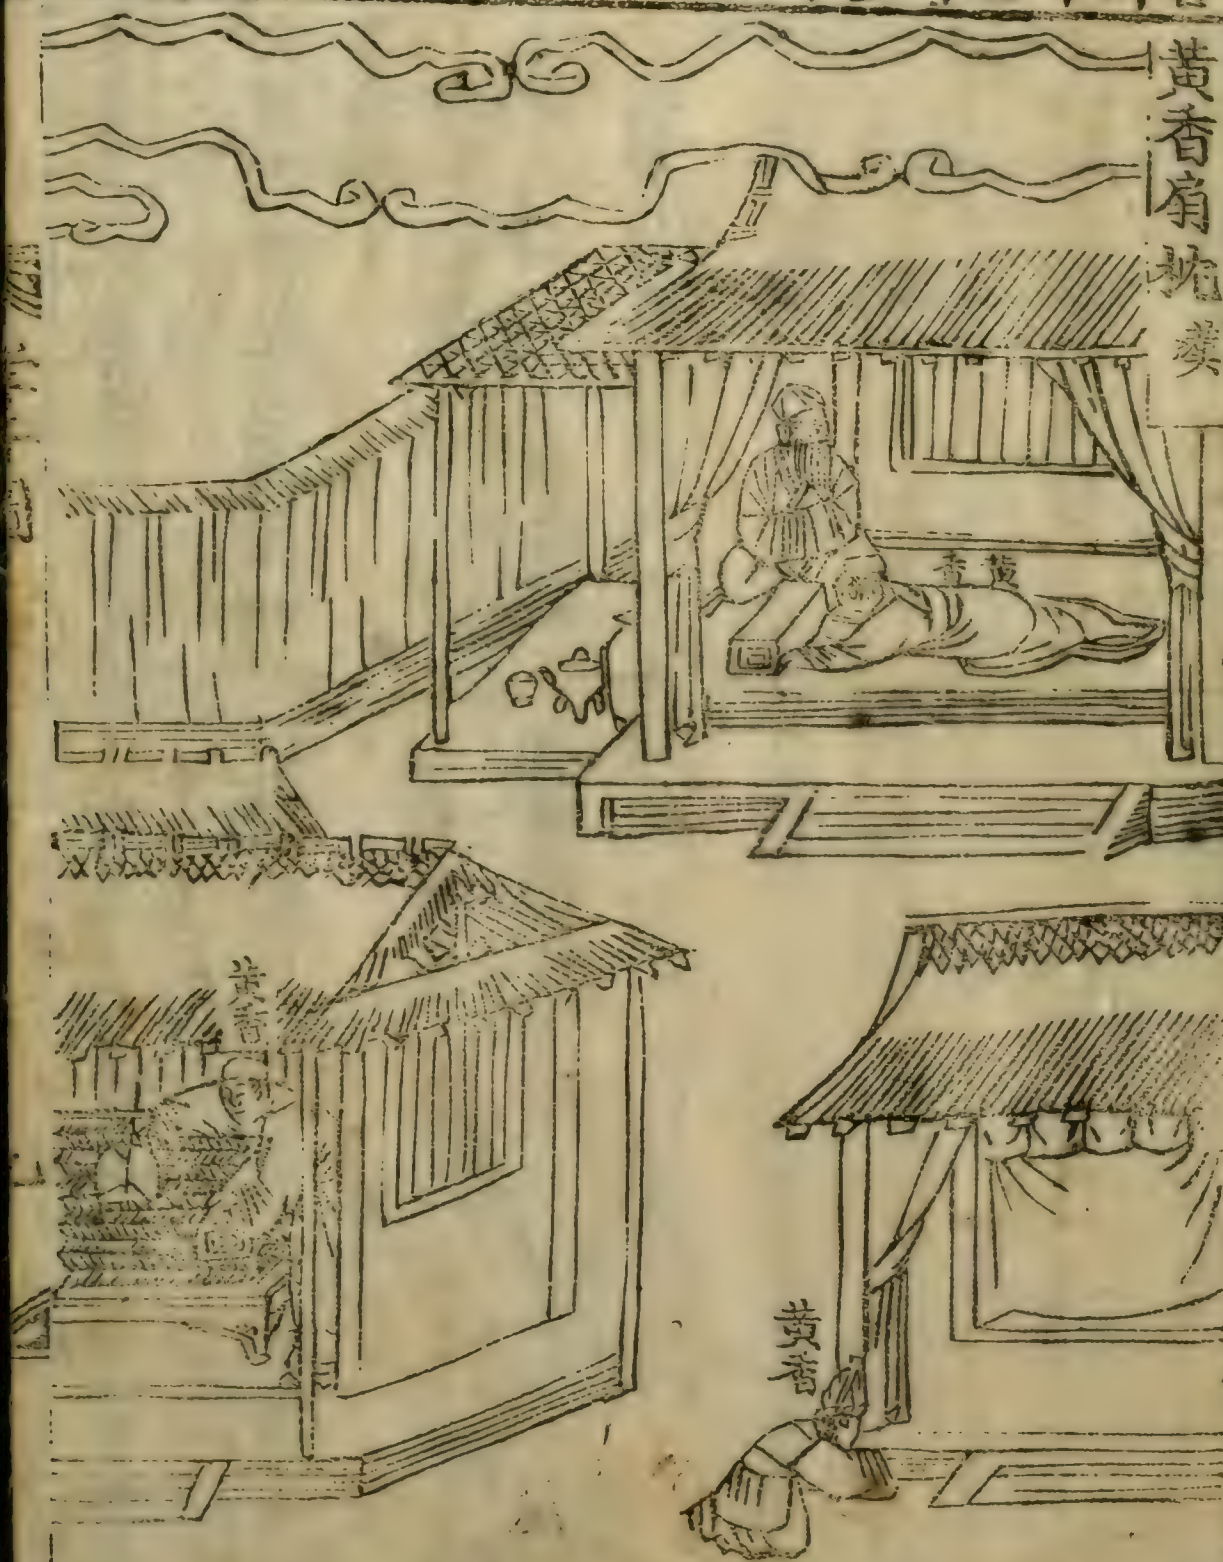 黃香扇枕 漢
黃香
黃香
黃香